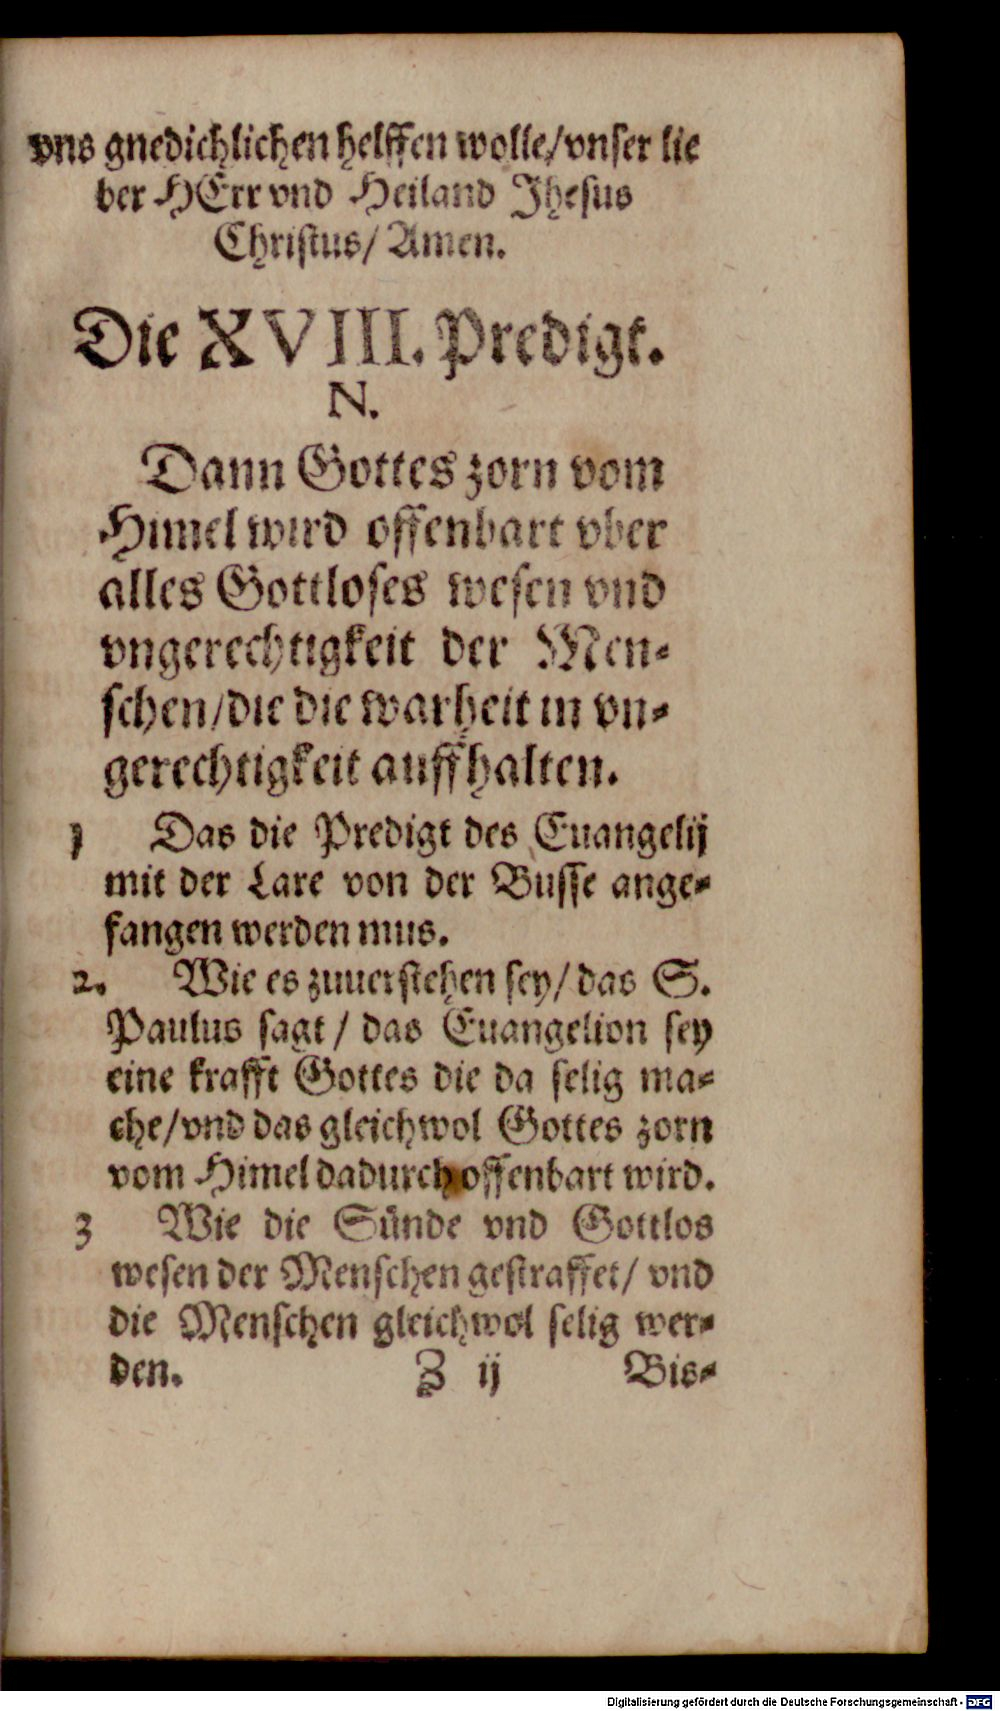 vns gnedichlichen helffen wolle/vnser lie
ber HErr vnd Heiland Jhesus
Christus/ Amen.
Die XVIII. Predigt.
N.
Dann Gottes zorn vom
Himel wird offenbart vber
alles Gottloses wesen vnd
vngerechtigkeit der Men-
schen/die die warheit in vn-
gerechtigkeit auffhalten.
1 Das die Predigt des Euangelij
mit der Lare von der Busse ange-
fangen werden mus.
2. Wie es zuuerstehen sey/ das S.
Paulus sagt/ das Euangelion sey
eine krafft Gottes die da selig ma-
che/vnd das gleichwol Gottes zorn
vom Himel dadurch offenbart wird.
3 Wie die Sünde vnd Gottlos
wesen der Menschen gestraffet/ vnd
die Menschen gleichwol selig wer-
den. Z ij Bis-
Digitalisierung gefördert durch die Deutsche Forschungsgemeinschaft - DFG